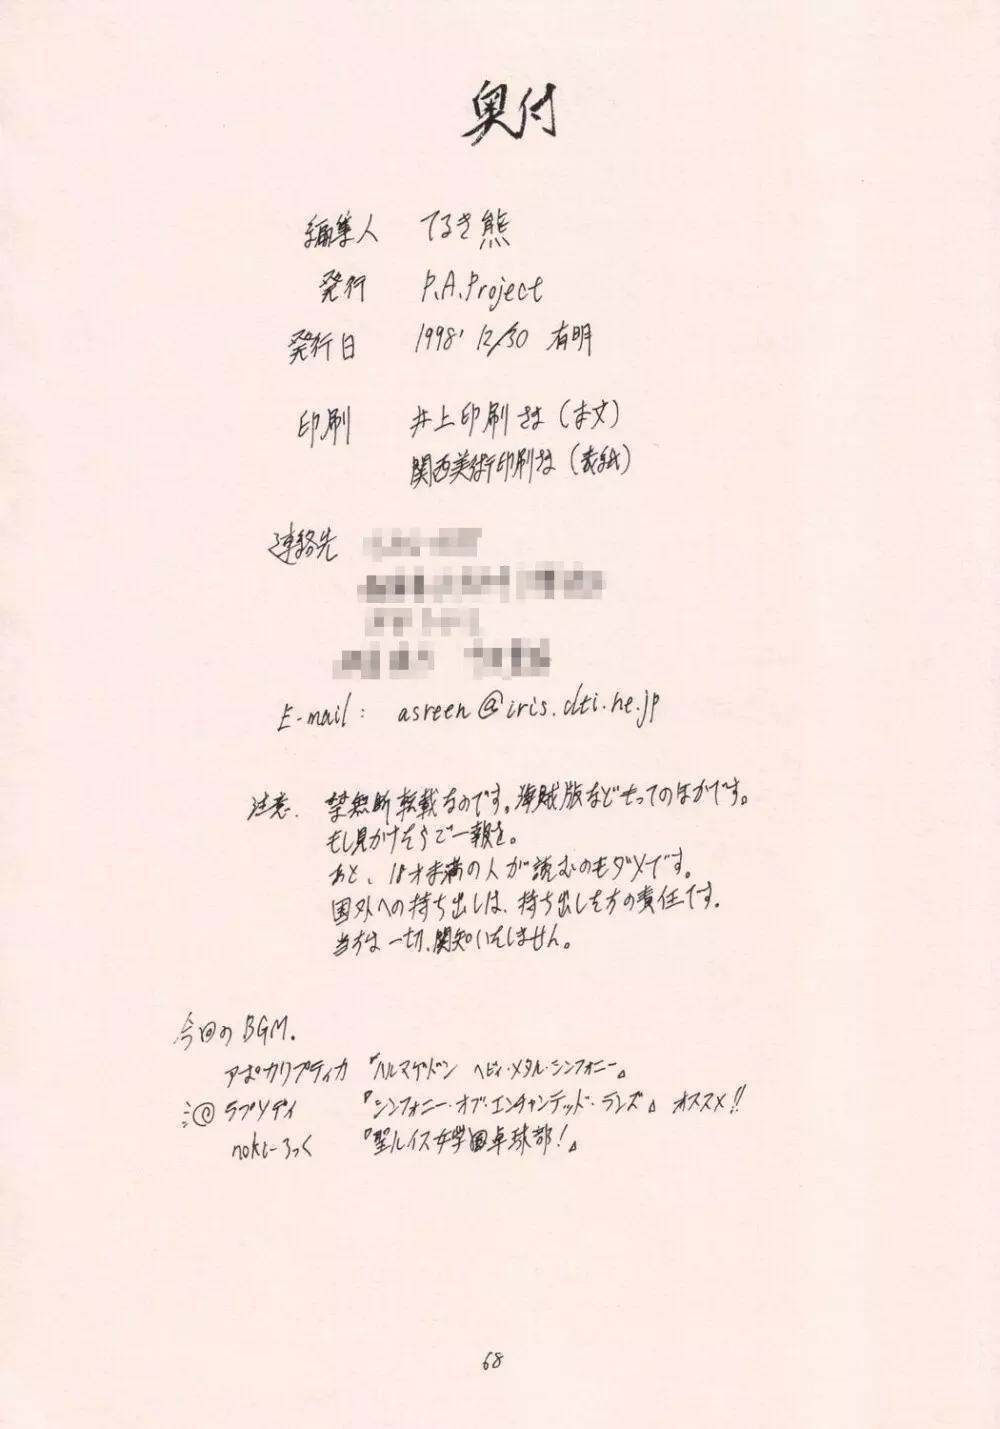 奥付
編集人 てるき熊
発行 P.A.Project
発行日 1998' 12/30 有明
印刷 井上印刷さま（本文）
関西美術印刷さま（表紙）
連絡先
E-mail: asreen@iris.dti.ne.jp
注意. 禁無断転載なのです。海賊版などもってのほかです。
もし見かけたらご一報を。
あと、18才未満の人が読むのもダメです。
国外への持ち出しは、持ち出した方の責任です。
当方は一切、関知いたしません。
今回のBGM.
アポカリプティカ 『ハルマゲドン ヘビィ・メタル・シンフォニー』
ラプソディ 『シンフォニー・オブ・エンチャンテッド・ランズ』 オススメ!!
『聖ルイス女学園卓球部!』
68